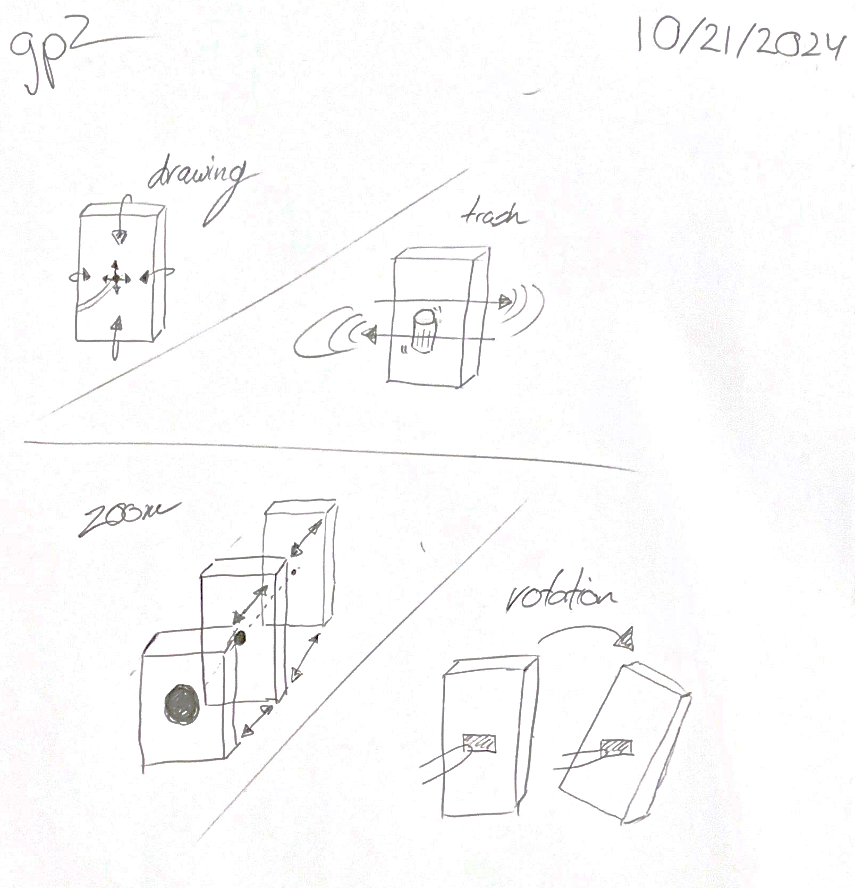 gp2
10/21/2024
drawing
trash
zoom
rotation